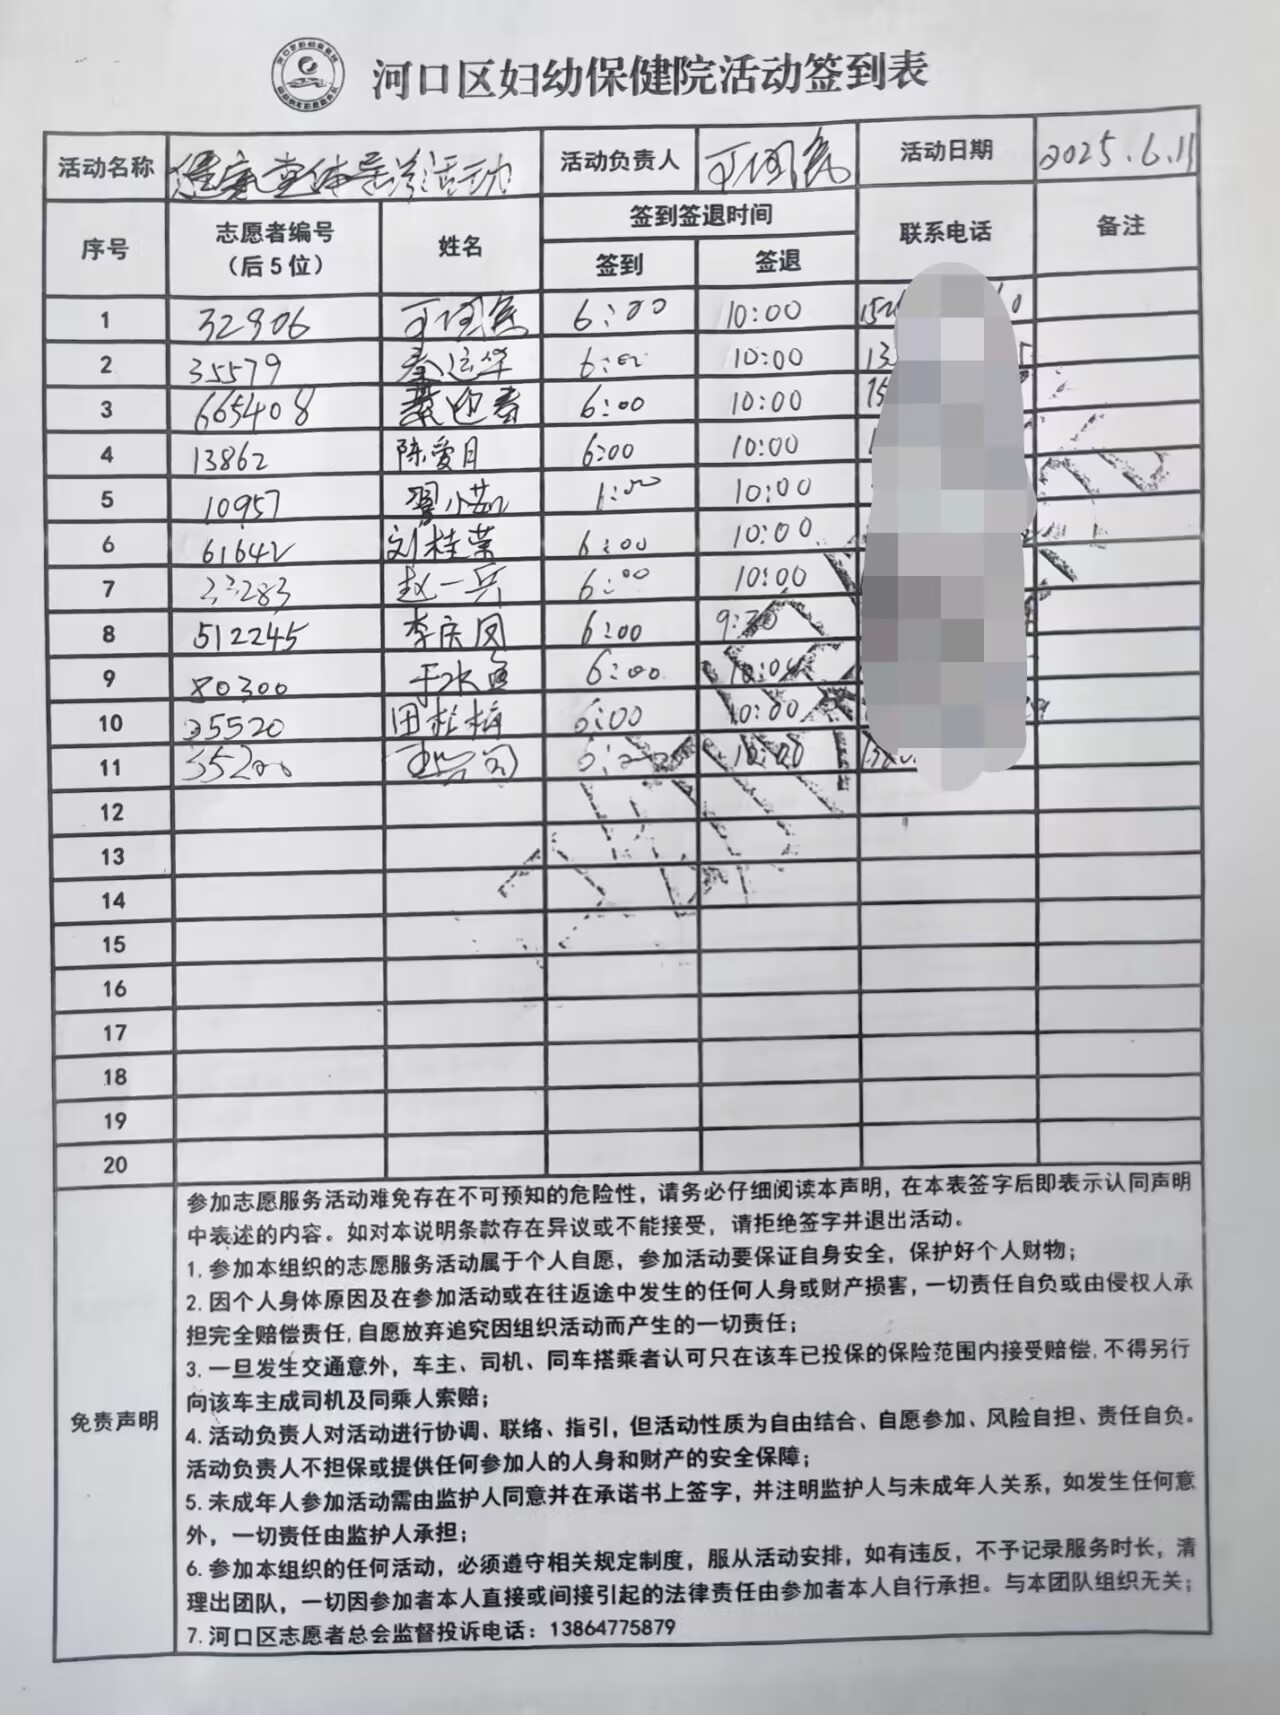 河口区妇幼保健院活动签到表
活动名称 活动 活动负责人 活动日期 2025.6.11
序号 志愿者编号（后5位） 姓名 签到签退时间 联系电话 备注
签到 签退
1 32906 6:00 10:00
2 35579 秦运华 6:00 10:00
3 665408 6:00 10:00
4 13862 陈爱月 6:00 10:00
5 10957 10:00
6 61642 刘桂荣 6:00 10:00
7 赵一兵 6:00 10:00
8 512245 李庆凤 6:00
9 80300 6:00
10 35520 田桂梅 10:00
11 10:00
12
13
14
15
16
17
18
19
20
免责声明
参加志愿服务活动难免存在不可预知的危险性，请务必仔细阅读本声明，在本表签字后即表示认同声明
中表述的内容。如对本说明条款存在异议或不能接受，请拒绝签字并退出活动。
1.参加本组织的志愿服务活动属于个人自愿，参加活动要保证自身安全，保护好个人财物；
2.因个人身体原因及在参加活动或在往返途中发生的任何人身或财产损害，一切责任自负或由侵权人承
担完全赔偿责任,自愿放弃追究因组织活动而产生的一切责任；
3.一旦发生交通意外，车主、司机、同车搭乘者认可只在该车已投保的保险范围内接受赔偿,不得另行
向该车主成司机及同乘人索赔；
4.活动负责人对活动进行协调、联络、指引，但活动性质为自由结合、自愿参加、风险自担、责任自负。
活动负责人不担保或提供任何参加人的人身和财产的安全保障；
5.未成年人参加活动需由监护人同意并在承诺书上签字，并注明监护人与未成年人关系，如发生任何意
外，一切责任由监护人承担；
6.参加本组织的任何活动，必须遵守相关规定制度，服从活动安排，如有违反，不予记录服务时长，清
理出团队，一切因参加者本人直接或间接引起的法律责任由参加者本人自行承担。与本团队组织无关；
7.河口区志愿者总会监督投诉电话：13864775879